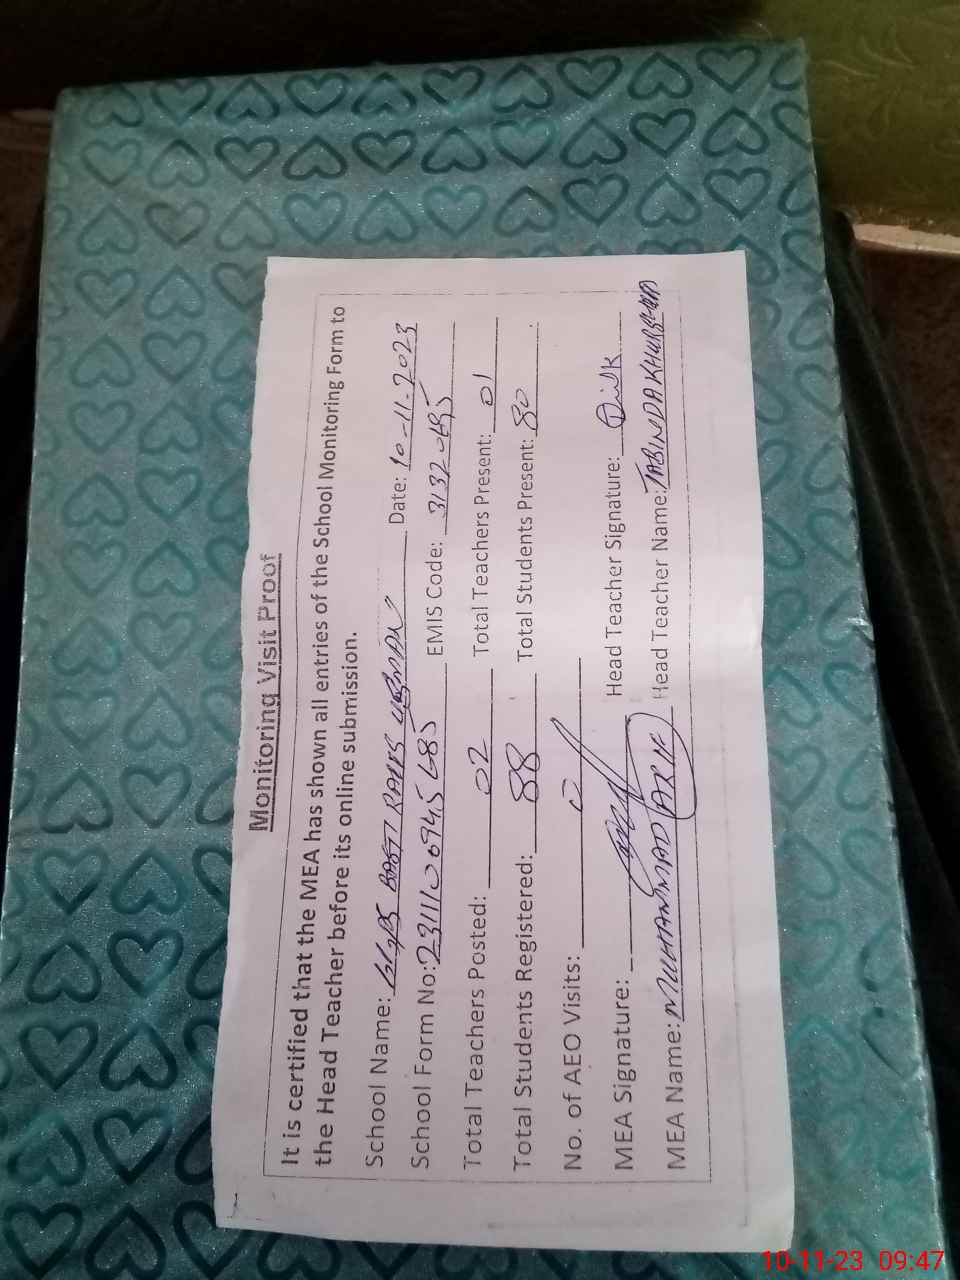 Monitoring Visit Proof
It is certified that the MEA has shown all entries of the School Monitoring Form to
the Head Teacher before its online submission.
School Name: GGPS BASTI RAIS USMAN Date: 10-11-2023
School Form No: EMIS Code: 31320695
Total Teachers Posted: 02 Total Teachers Present: 01
Total Students Registered: 88 Total Students Present: 80
No. of AEO Visits: 0
MEA Signature: Head Teacher Signature:
MEA Name: MUHAMMAD ARIF Head Teacher Name: TABINDA KHURSHID
10-11-23 09:47